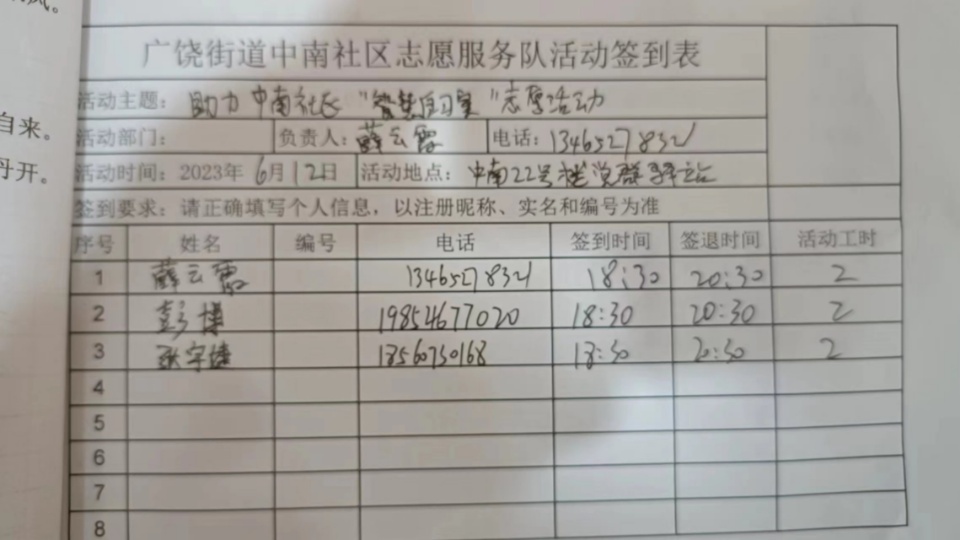 自来。
丹开。
广饶街道中南社区志愿服务队活动签到表
活动主题：助力中南社区“智慧自习室”志愿活动
活动部门： 负责人：薛云霞 电话：13465278321
活动时间：2023年6月12日 活动地点：中南22号楼党群驿站
签到要求：请正确填写个人信息，以注册昵称、实名和编号为准
序号 姓名 编号 电话 签到时间 签退时间 活动工时
1 薛云霞 13465278321 18:30 20:30 2
2 彭博 19854677020 18:30 20:30 2
3 18560730168 18:30 20:30 2
4
5
6
7
8